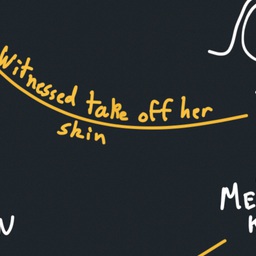 Witnessed take off her
skin